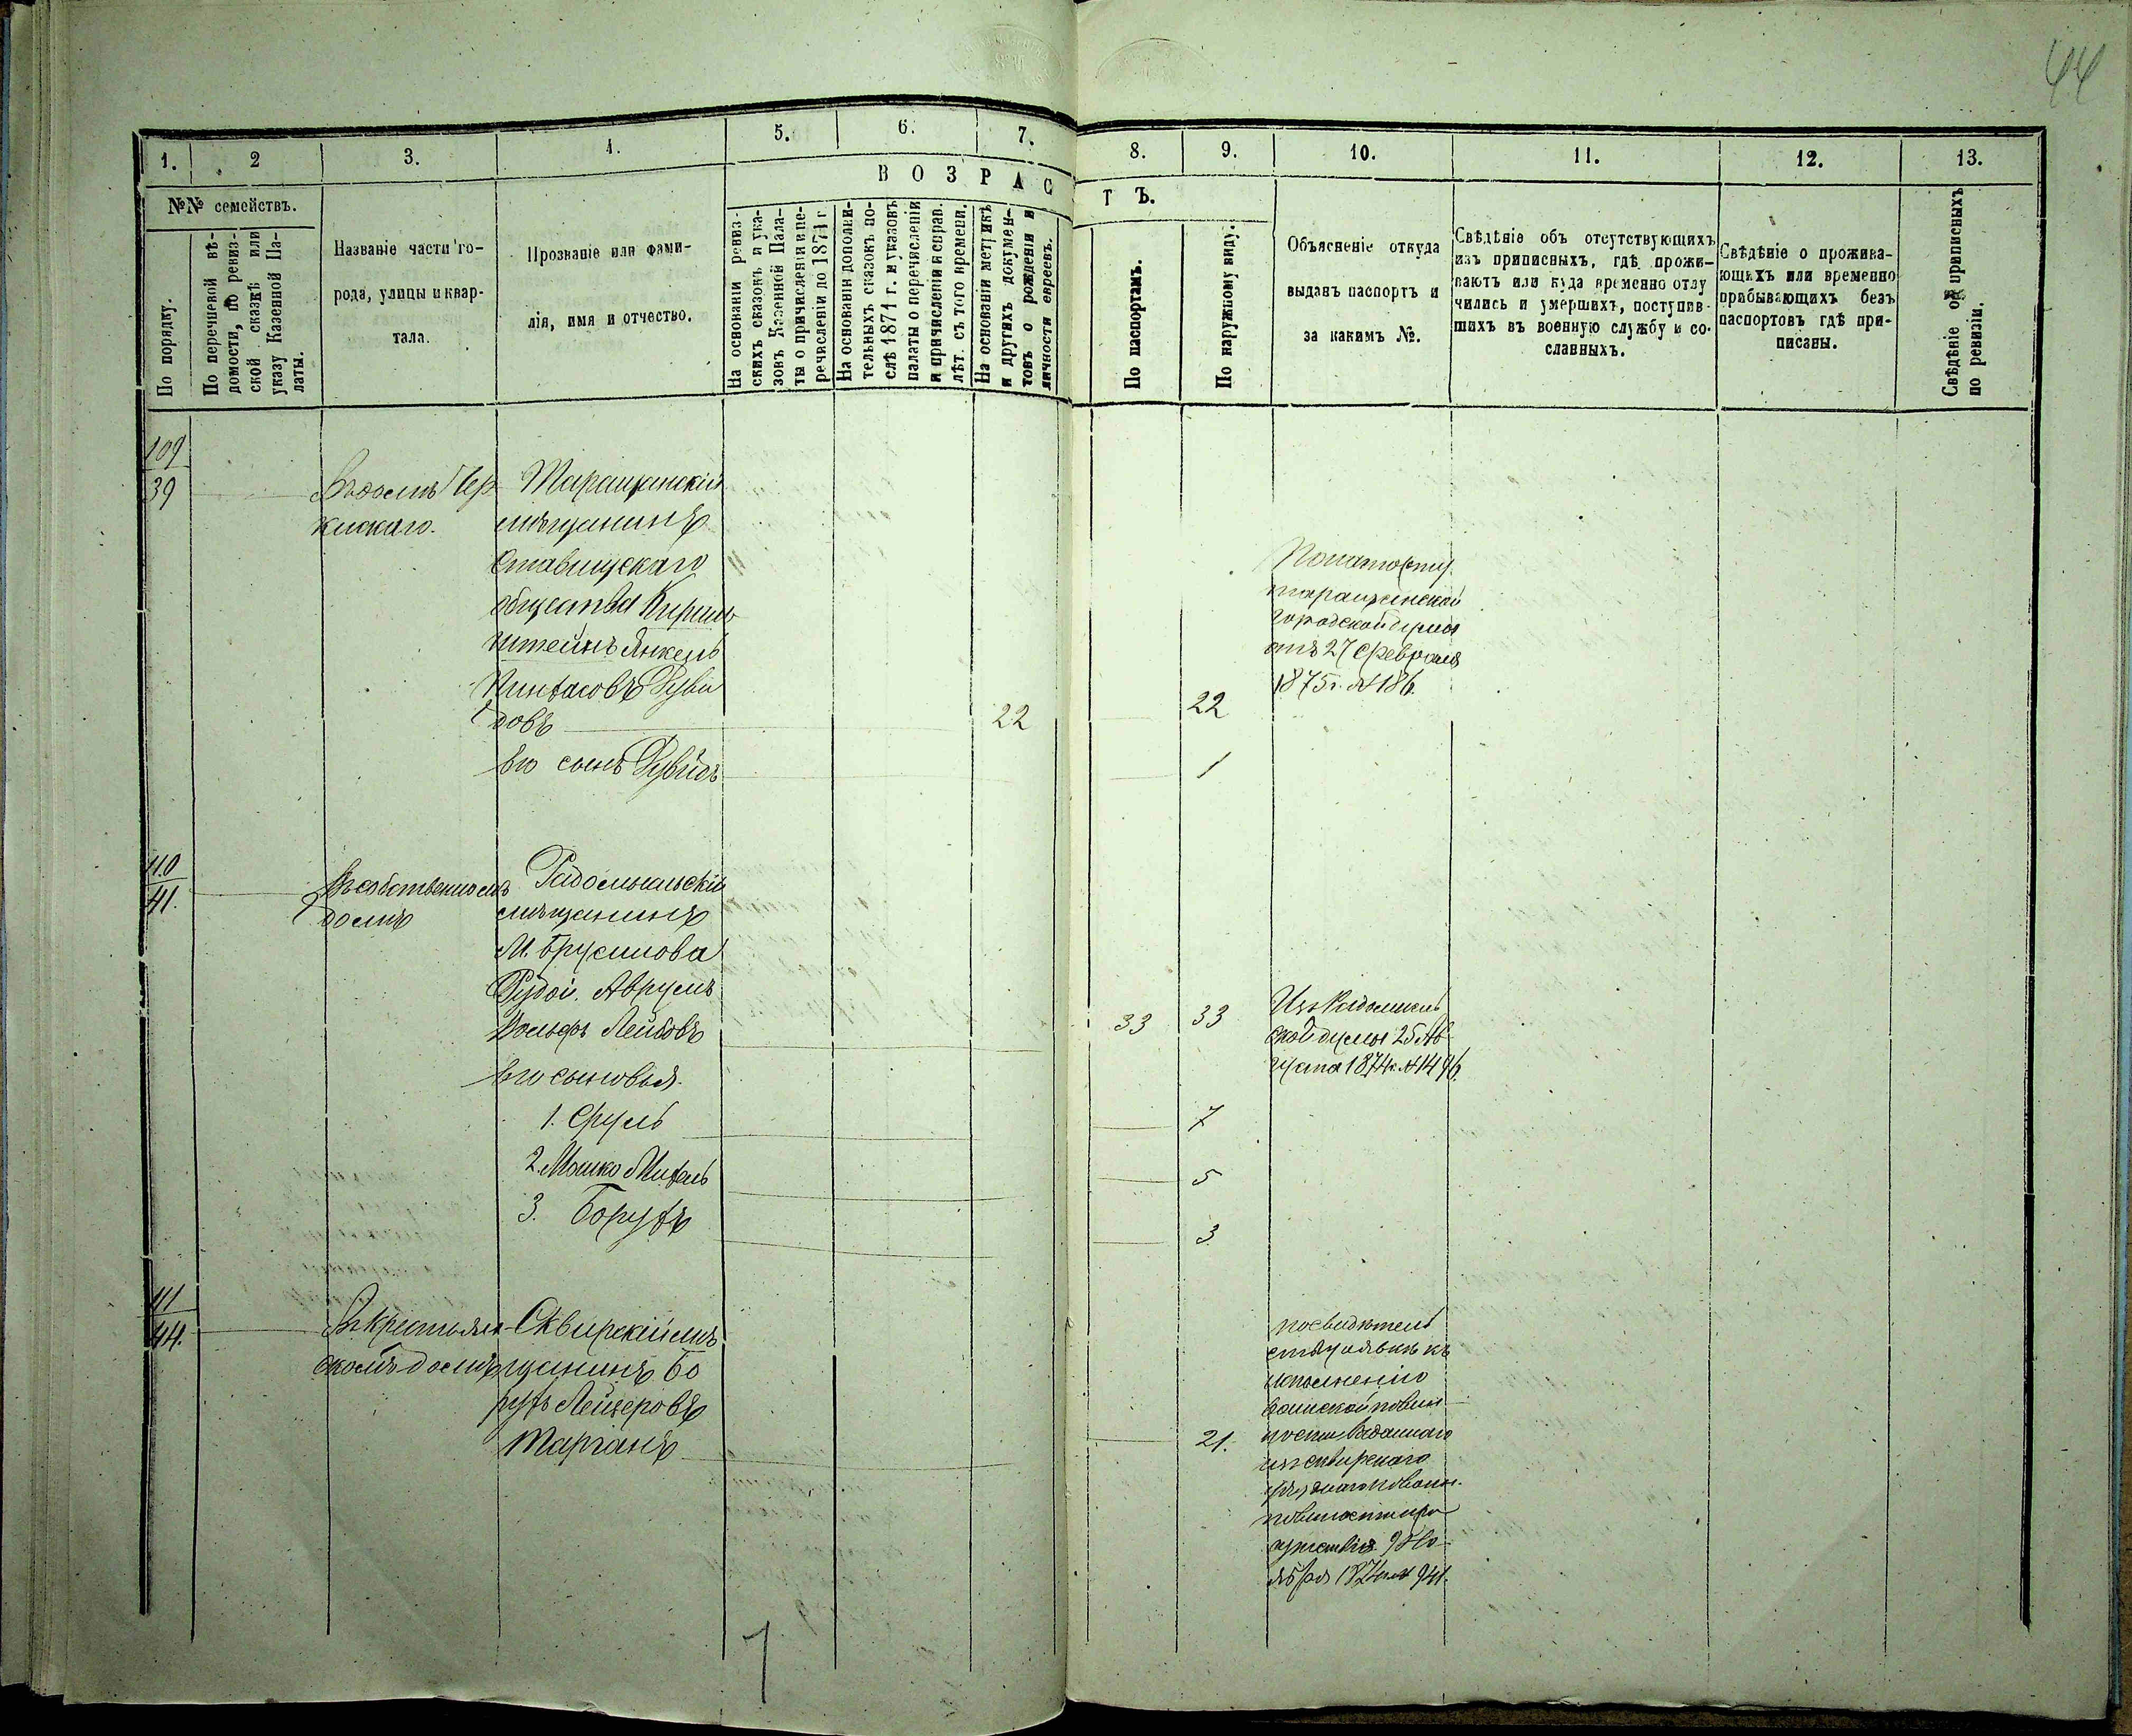 44
1. 2 3. 4. 5. 6. 7. 8. 9. 10. 11. 12. 13.
ВОЗРАСТЪ.
№№ семействъ.
По порядку.
По перечневой вѣ-
домости, по ревиз-
ской сказкѣ или
указу Казенной Па-
латы.
Названіе части го-
рода, улицы и квар-
тала.
Прозваніе или фами-
лія, имя и отчество.
На основаніи ревиз-
скихъ сказокъ и ука-
зовъ Казенной Пала-
ты о причисленіи и пе-
речисленіи до 1871 г
На основаніи дополни-
тельныхъ сказокъ по-
слѣ 1871 г. и указовъ
палаты о перечисленіи
и причисленіи к справ.
лѣт. съ того времени.
На основаніи метрикъ
и другихъ докумен-
товъ о рожденіи и
личности евреевъ.
По паспортамъ.
По наружному виду.
Объясненіе откуда
выданъ паспортъ и
за какимъ №.
Свѣдѣніе объ отсутствующихъ
изъ приписныхъ, гдѣ прожи-
ваютъ или куда временно отлу
чились и умершихъ, поступив-
шихъ въ военную службу и со-
сланныхъ.
Свѣдѣніе о прожива-
ющихъ или временно
прибывающихъ безъ
паспортовъ гдѣ при-
писаны.
Свѣдѣніе о приписныхъ
по ревизіи.
109
39
Въ домѣ Чер
каскаго.
Таращанскій
мѣщанинъ
Ставищскаго
общества Кирш
штейнъ Янкель
Пинхасовъ Руви
довъ
22
22
По паспорту
таращанской
городской думы
отъ 27 февраля
1875 г. №186.
Его сынъ Рувидъ
1
110
41.
Въ собственномъ
домѣ
Радомысльскій
мѣщанинъ
М. Брусилова
Рудой Аврумъ
Вольфъ Лейбовъ
33
33
Изъ Радомысль
ской думы 25 Ав
густа 1874 г. №1496.
Его сыновья.
1. Сруль
7
2. Мошко Михель
5
3. Борухъ
3
111
44.
Въ крестьян-
скомъ домѣ
Сквирскій мѣ
щанинъ Бо
рухъ Лейзеровъ
Тарганъ
21.
По свидѣтель
ству о явкѣ къ
исполненію
воинской повин-
ности выданнаго
изъ сквирскаго
уѣзднаго по воин.
повинности при
сутствія 9 Но
ября 1874 г. № 941.